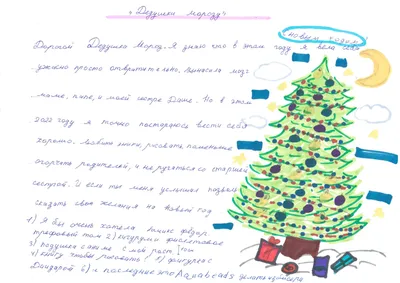 "Дедушки морозу"
новым годом
Дорогой Дедушка Мороз. Я знаю что в этом году я вела себя
ужасно просто отвратительно, выносила мозг
маме, папе, и моей сестре Даше. Но в этом
2022 году я точно постараюсь вести себя
хорошо. читать книги, рисовать
огорчать родителей, и не ругаться со старшей
сестрой. И если ты меня услышал позволь
сказать свои желания на Новый год
1) Я бы очень хотела
2) кигуруми фиолетовое
3) подушки с аниме с
4) книгу чтобы рисовать 5) фигурес
6) и последнее это Aquabeads